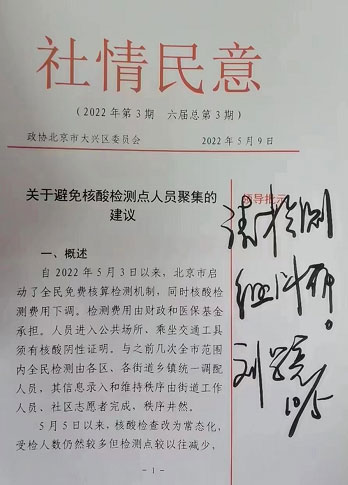 社情民意
(2022年第3期 六届总第3期)
政协北京市大兴区委员会 2022年5月9日
关于避免核酸检测点人员聚集的
建议
领导批示
请检测
组研布。
刘学亮
10/5
一、概述
自2022年5月3日以来，北京市启
动了全民免费核算检测机制，同时核酸检
测费用下调。检测费用由财政和医保基金
承担。人员进入公共场所、乘坐交通工具
须有核酸阴性证明。与之前几次全市范围
内全民检测由各区、各街道乡镇统一调配
人员，其信息录入和维持秩序由街道工作
人员、社区志愿者完成，秩序井然。
5月5日以来，核酸检查改为常态化，
受检人数仍然较多但检测点较以往减少，
- 1 -